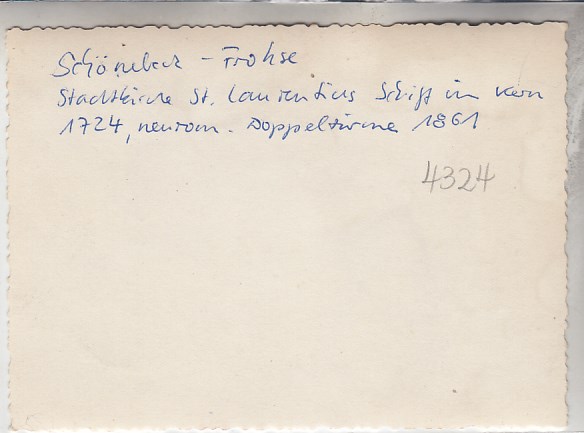 Schönebeck - Frohse
Stadtkirche St. Laurentius Schiff im Kern
1724, neurom. Doppeltürme 1861
4324